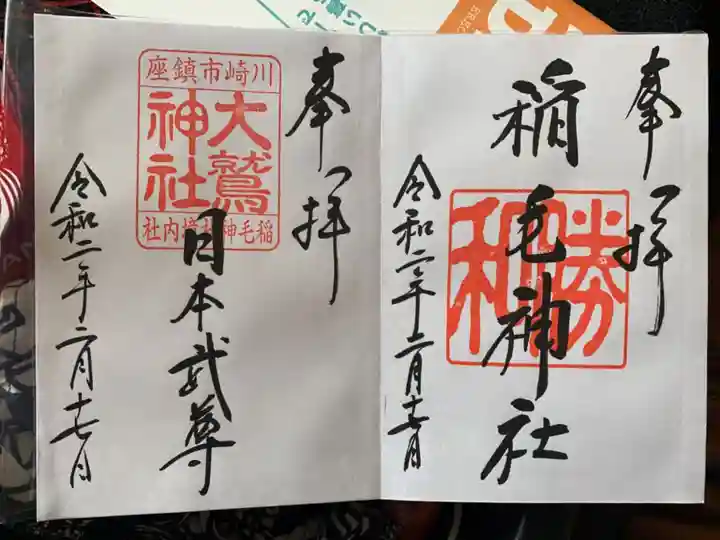 奉拝
稲毛神社
勝和
令和二年二月十七日
奉拝
川崎市鎮座
大鷲神社
稲毛神社境内社
日本武尊
令和二年二月十七日